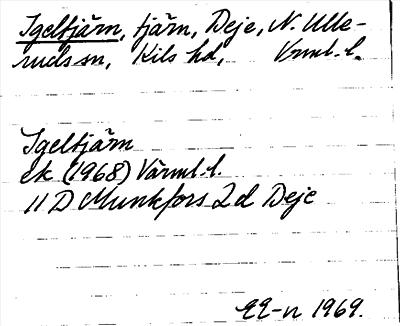 Igeltjärn, tjärn, Deje, N. Ulle-
ruds sn, Kils hd, Vrml. l.
Igeltjärn
ek (1968) Värml. l.
11 D Munkfors 2d Deje
1969.